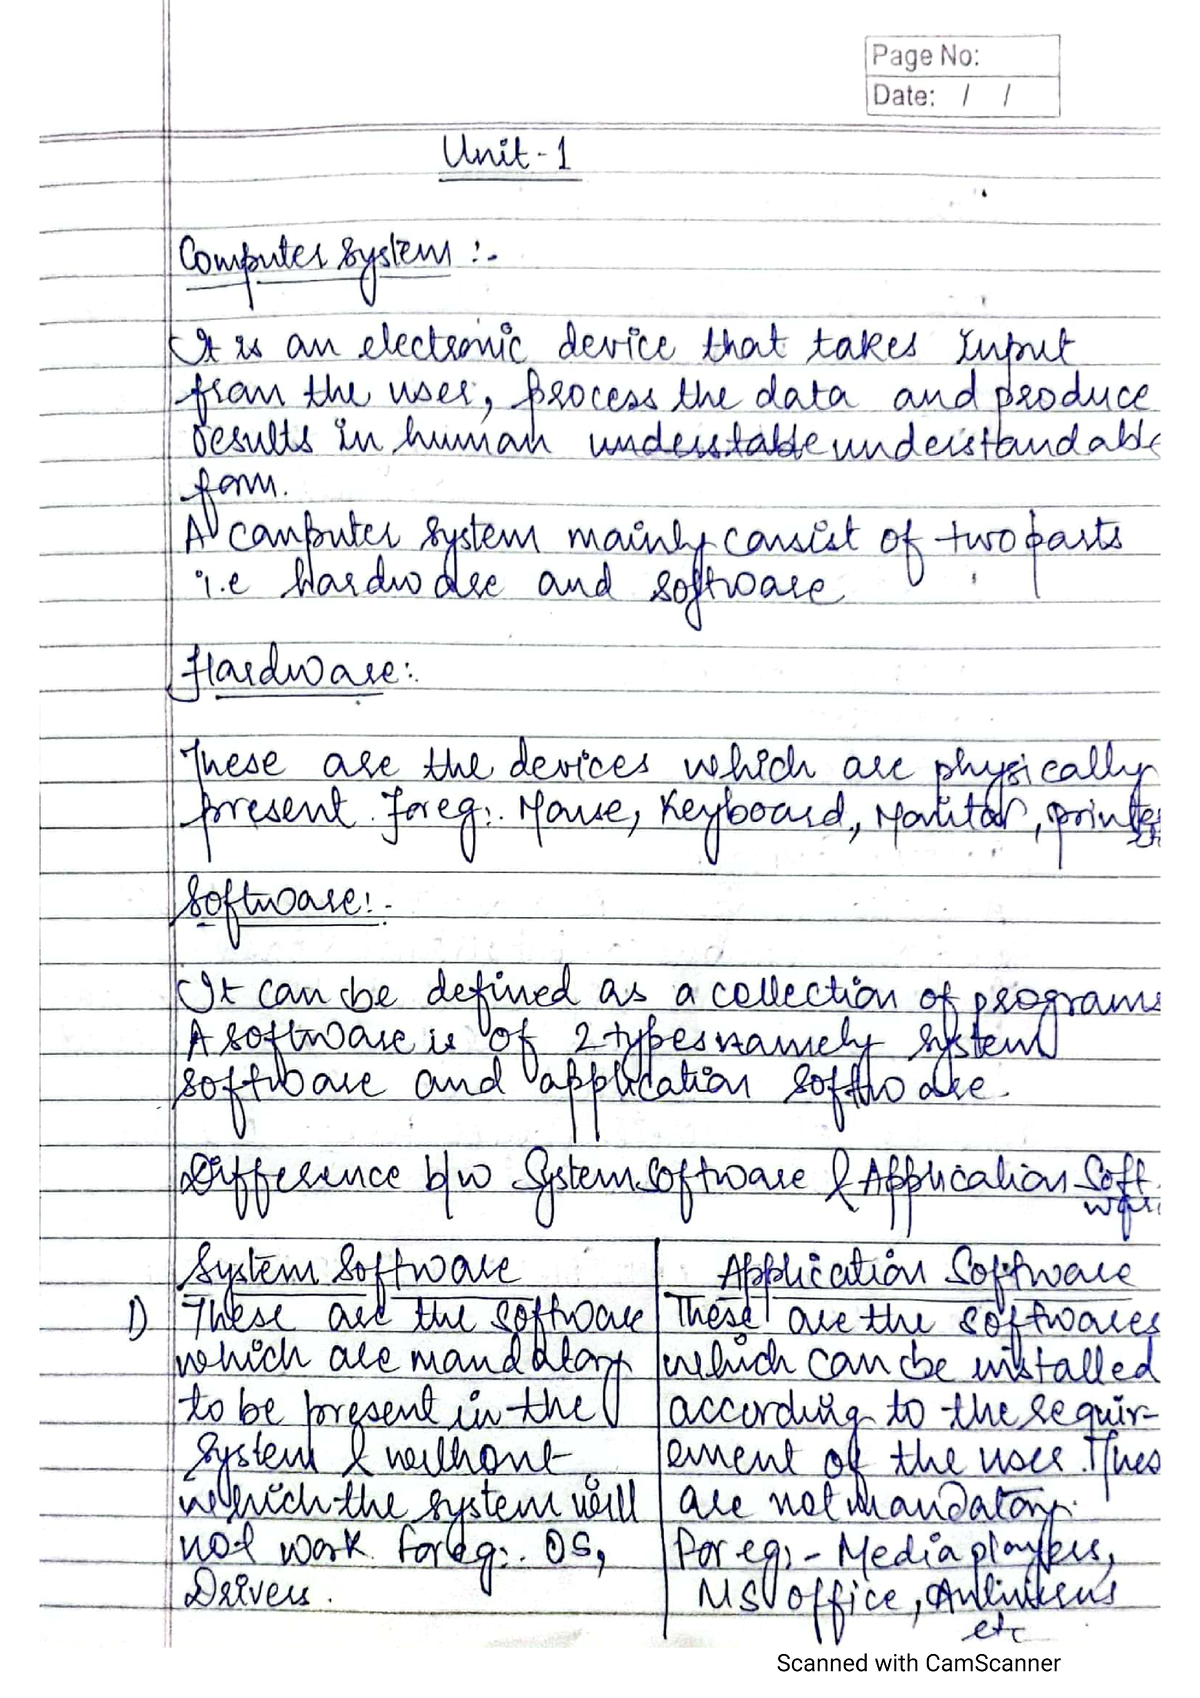 Page No:
Date: / /
Unit-1
Computer System :-
It is an electronic device that takes Input
from the user, process the data and produce
results in human understable understandable
form.
A computer system mainly consist of two parts
i.e hardware and software
Hardware:
These are the devices which are physically
present. For eg:. Mouse, Keyboard, Monitor, printer
etc
Software:-
It can be defined as a collection of programs
A software is of 2 types namely system
software and application software.
Difference b/w System Software & Application Soft
ware
System Software
1) These are the software
which are mandatory
to be present in the
system & without
which the system will
not work. For eg:. OS,
Drivers.
Application Software
These are the softwares
which can be installed
according to the requir-
ement of the user. Thes
are not mandatory.
For eg:- Media players,
MS office, Antivirus
etc
Scanned with CamScanner